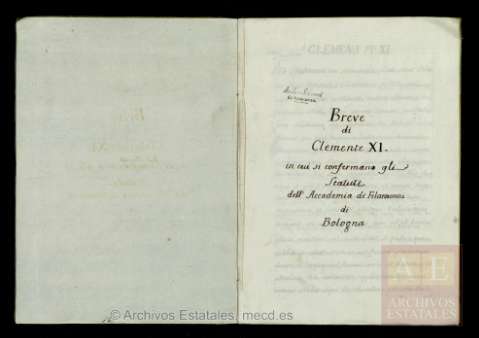 Breve
di
Clemente XI.
in cui si confermano gli
Statuti
dell' Accademia de Filarmonici
di
Bologna
© Archivos Estatales, mecd.es
AE
ARCHIVOS
ESTATALES